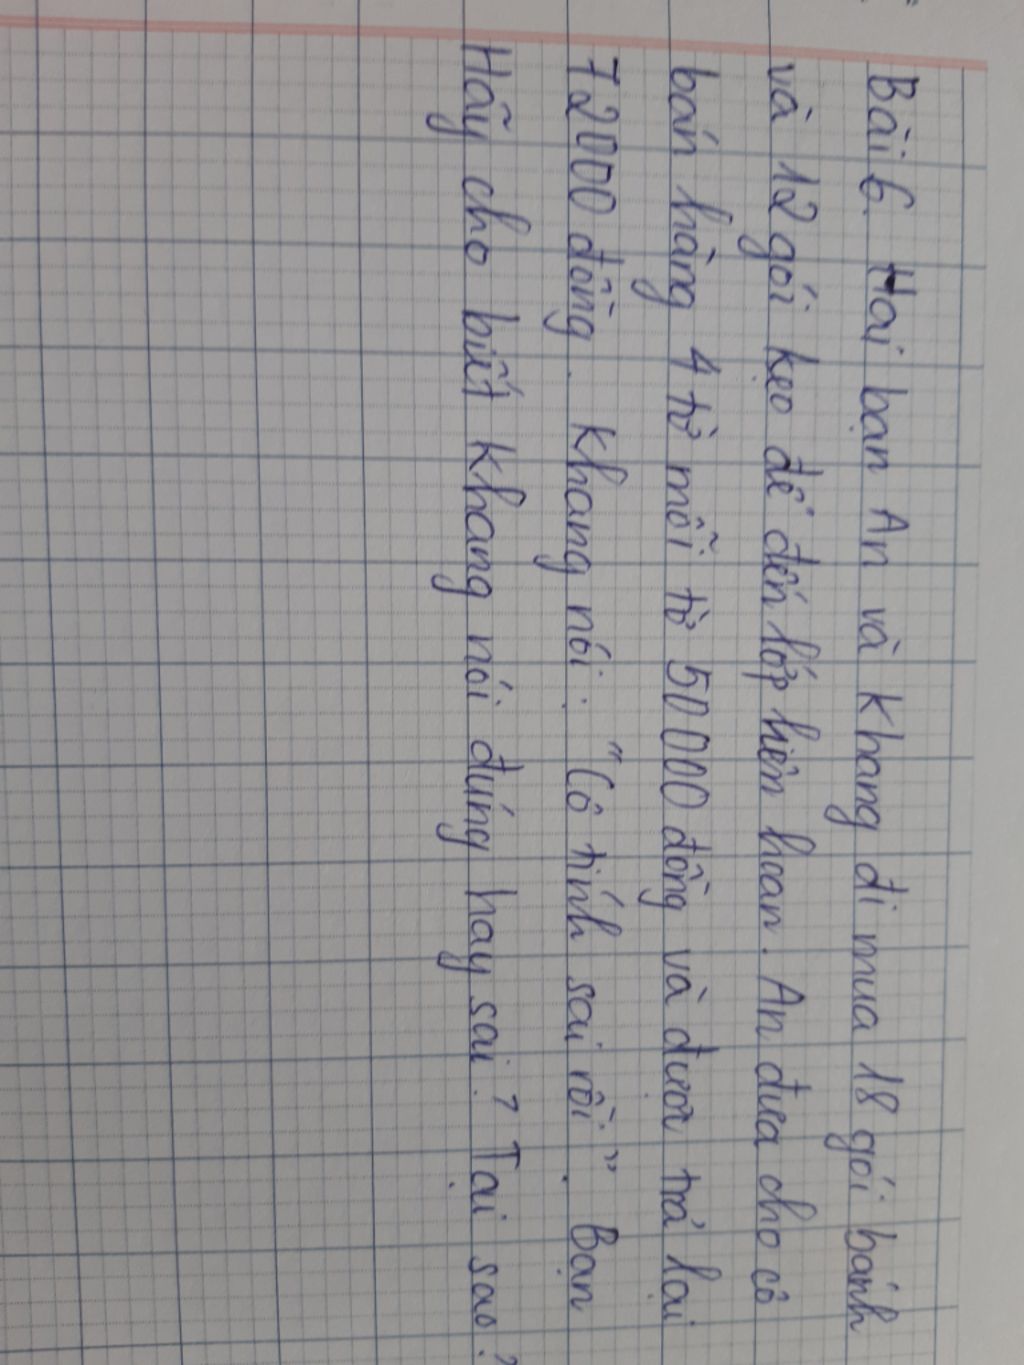 Bài 6. Hai bạn An và Khang đi mua 18 gói bánh
và 12 gói kẹo để đến lớp liên hoan. An đưa cho cô
bán hàng 4 tờ mỗi tờ 50000 đồng và được trả lại
72000 đồng. Khang nói: "Cô tính sai rồi". Bạn
Hãy cho biết Khang nói đúng hay sai? Tại sao?